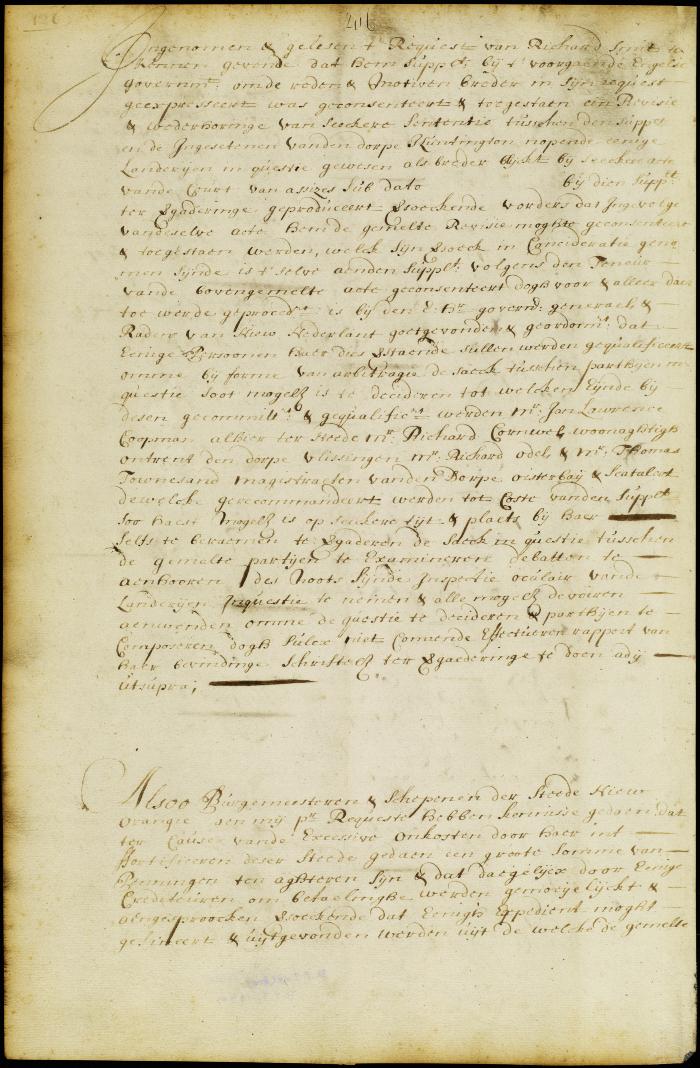 126
206
Ingenomen & gelesen t' Request van Richard Smit te
kennen gevende dat hem Supplt. bij t' voorgaende Engelse
governmt. om de reden & Motiven breder in sijn request
geexpresseert was geconsenteert & toegestaen een Revisie
& wederhoringe van seeckere sententie tusschen den supplt
en de Ingesetenen vanden dorpe Huntington nopende eenige
Landerijen in questie gewesen als breder blijckt bij seeckere acte
vande Court van assizes sub dato bij dien supplt.
ter vgaderinge geproduceert vsoeckende vorders dat Ingevolge
vandeselve acte hem de gemelte Revisie moghte geconsenteert
& toegestaen werden, welck sijn vsoeck in Concideratie geno
men sijnde is t' selve aenden Supplt. volgens den Teneur
vande bovengemelte acte geconsenteert dogh voor & alleer daer
toe werde geproced.t is bij den E. Hr. governr. generael &
Raden van Nieuw Nederlant goetgevonden & geordonnt. dat
Eenige Persoonen haer dies vstaende sullen werden gequalificeert
omme bij forme van arbitragie de saeck tusschen parthijen in
questie soot mogelk is te decideren tot welcken Eynde bij
desen gecommitt.t & gequalific.t werden mr. Jan Lawrence
Coopman alhier ter steede mr. Richard Cornwel, woonaghtigh
ontrent den dorpe Vlissingen mr. Richard odel & mr. Thomas
Townesand magistraeten vanden Dorpe oisterbay & Seatalcot
dewelcke gerecommandeert werden tot Coste vanden Supplt
soo haest mogelk is op seeckere tijt & plaets bij haer
selfs te beraemen te vgaderen de saeck in questie tusschen
de gemelte partijen te Examineren debatten te
aenhooren des noots sijnde Inspectie oculair vande
Landerijen Inquestie te nemen & alle mogelk devoiren
aenwenden omme de questie te decideren & parthijen te
Composeren, dogh sulcx niet Connende Effectueren rapport van
haer bevindinge schriftelk ter vgaederinge te doen adij
utsupra;
Alsoo Burgemeesteren & Schepenen der Steede Nieuw
orangie aen mij pr. Requeste hebben kennisse gedaen dat
ter Cause vande Excessive onkosten door haer int
fortificeren deser Steede gedaen een groote somme van
Penningen ten aghteren sijn & dat daegelijcx door Eenige
Crediteuren om betaelinghe werden gemoeijelijckt &
aengesproocken vsoeckende dat Eenigh Expedient moght
gesineert & uijtgevonden werden uijt de welcke de gemelte